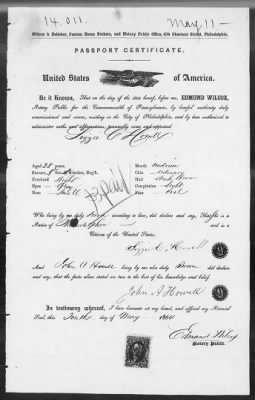 14.011.
May 11 -
Wilcox & Hollister, Custom House Brokers, and Notary Public Office, 406 Chestnut Street, Philadelphia.
PASSPORT CERTIFICATE.
United States of America.
Be it Known, That on the day of the date hereof, before me, EDMUND WILCOX,
Notary Public for the Commonwealth of Pennsylvania, by lawful authority duly
commissioned and sworn, residing in the City of Philadelphia, and by law authorized to
administer oaths and affirmations, personally came and appeared
Lizzie C. Howell
Aged 35 years. Mouth Medium
Stature, 5 feet inches, Eng. Chin Ordinary
Forehead Hair Dark Brown
Eyes Grey Complexion Light
Nose Small Face Oval
$3 paid
Who being by me duly Sworn according to law, did declare and say, that she is a
Native of and a
Citizen of the United States.
Lizzie C. Howell
And John A. Howell being by me also duly Sworn did declare
and say, that the facts above stated are true to the best of his knowledge and belief.
John A Howell
In testimony whereof, I have hereunto set my hand, and affixed my Notarial
Seal, this Tenth day of May 186
Edmund Wilcox
Notary Public.